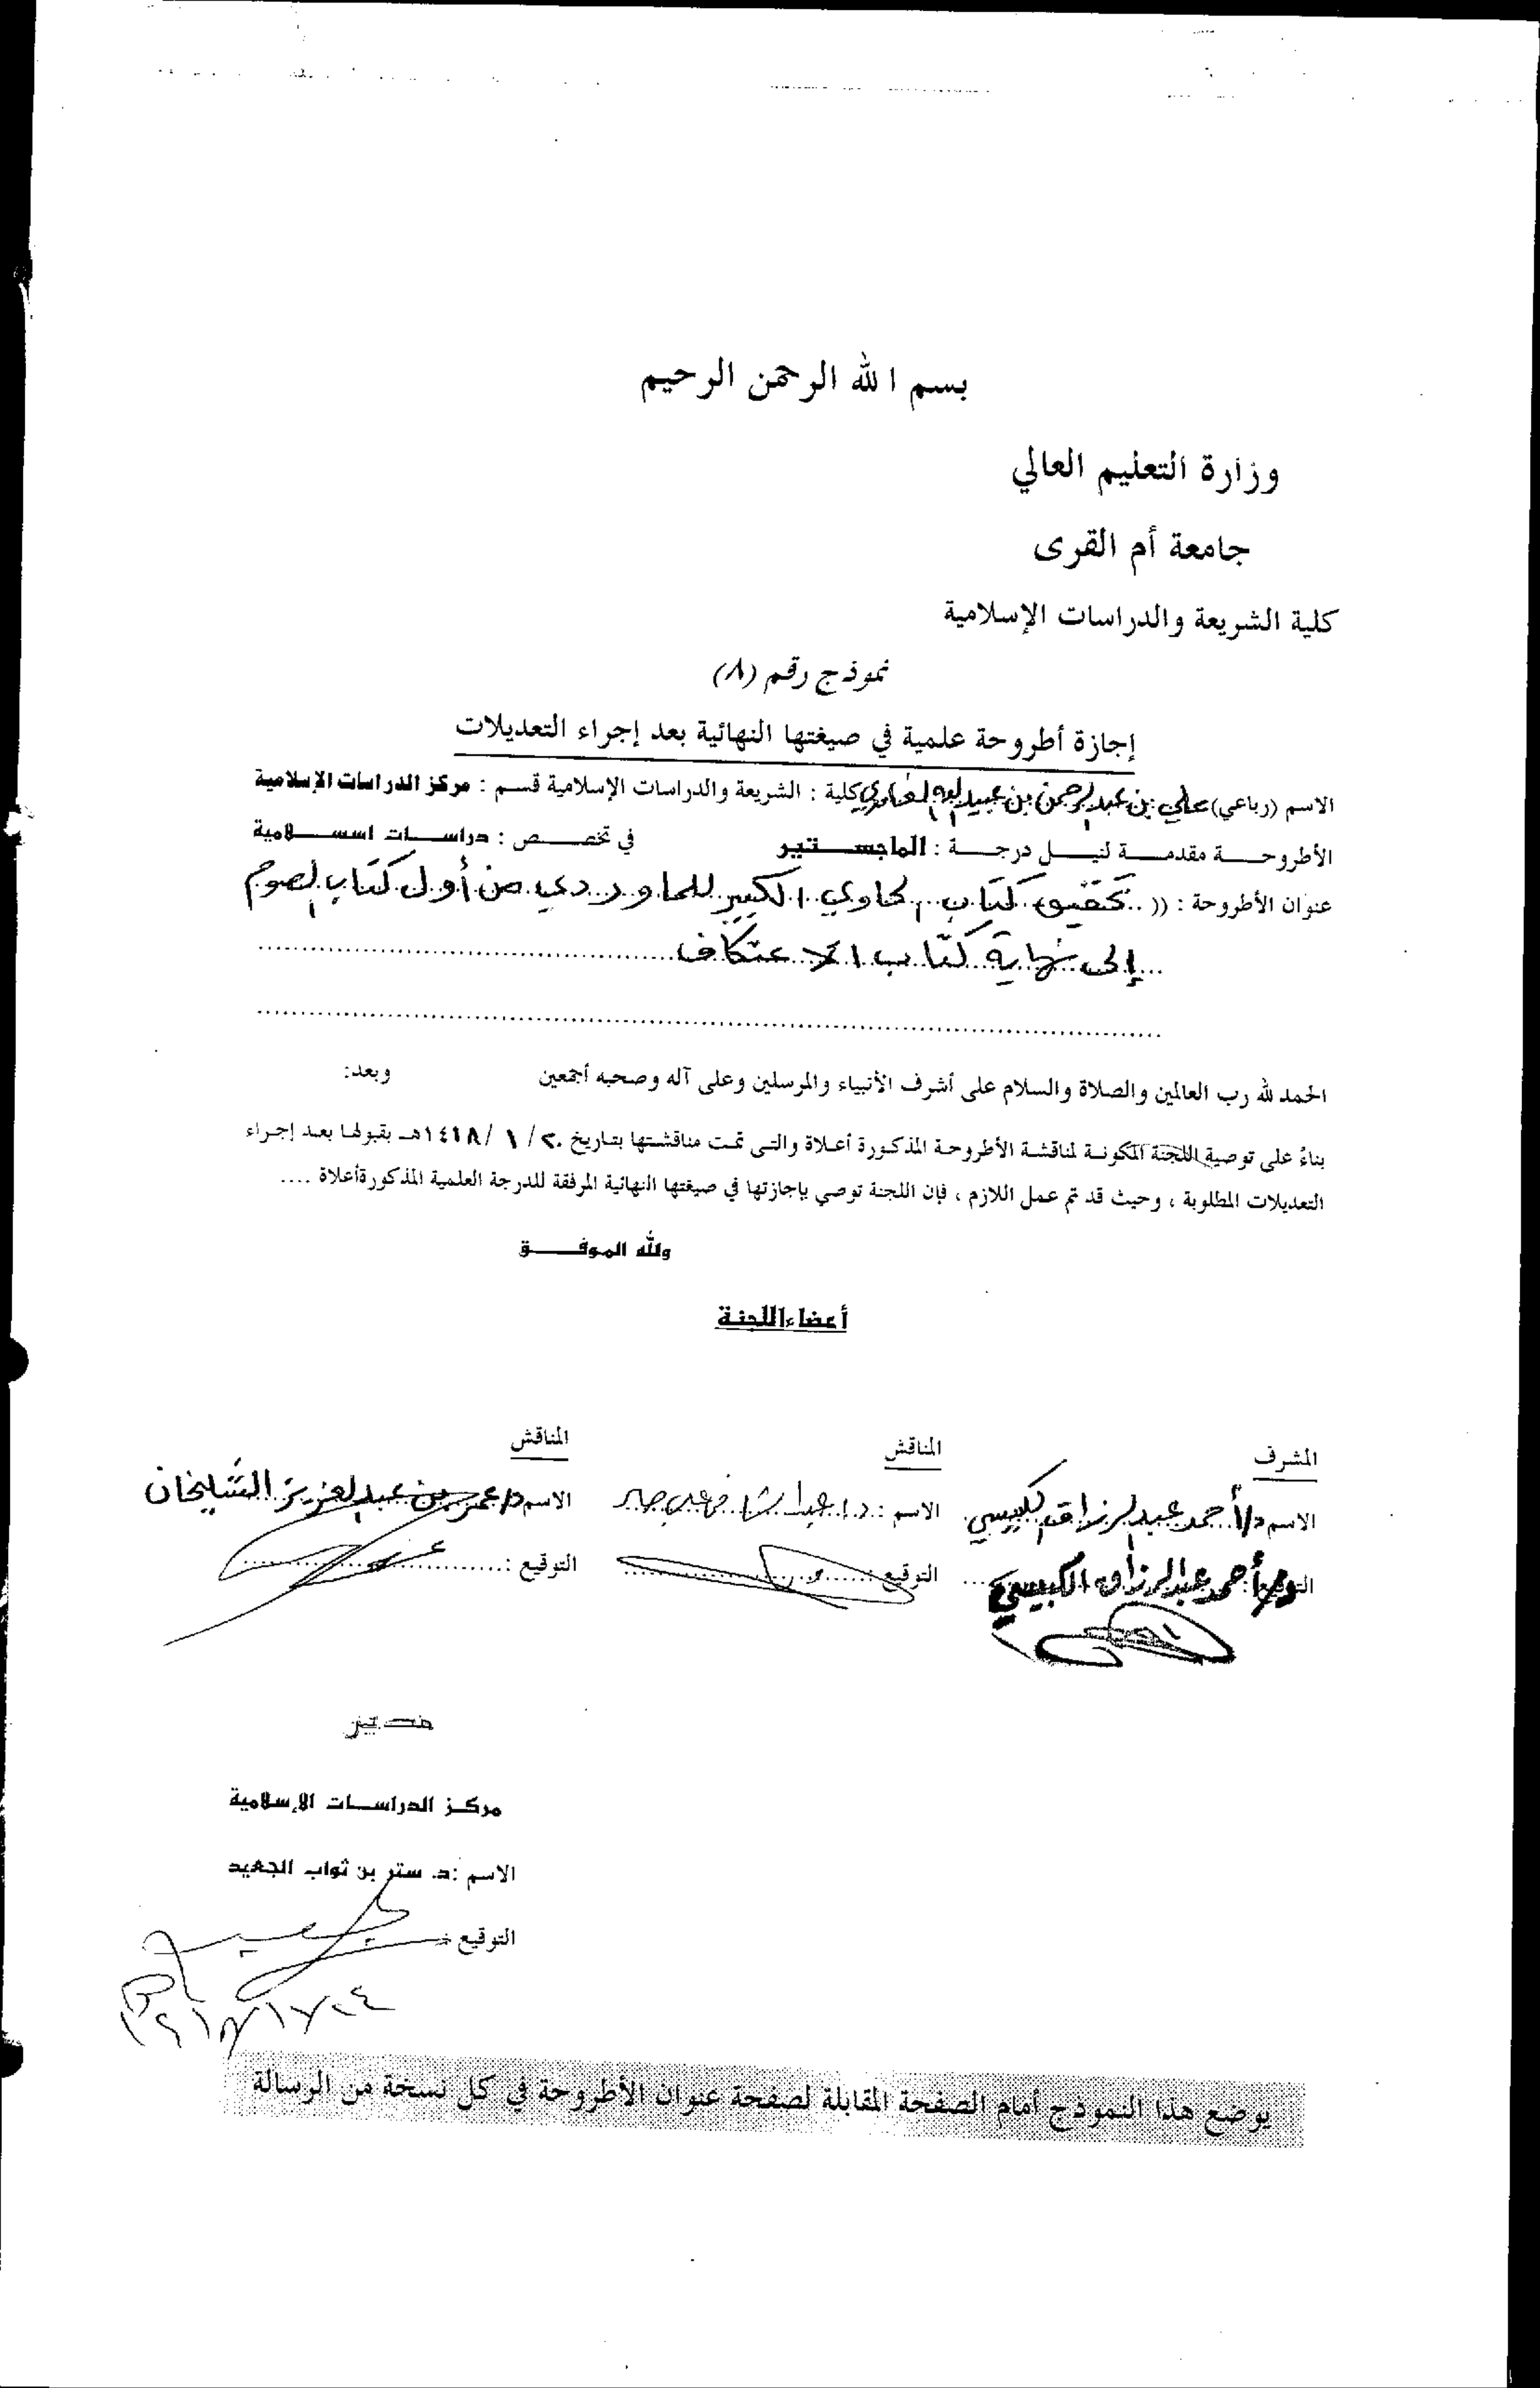 بسم الله الرحمن الرحيم
وزارة التعليم العالي
جامعة أم القرى
كلية الشريعة والدراسات الإسلامية
نموذج رقم (٨)
إجازة أطروحة علمية في صيغتها النهائية بعد إجراء التعديلات
الاسم (رباعي) علي بن عبد الرحمن بن عبيد الله كلية : الشريعة والدراسات الإسلامية قسم : مركز الدراسات الإسلامية
الأطروحة مقدمة لنيل درجة : الماجستير في تخصص : دراسات اسسلامية
عنوان الأطروحة : (( .. تحقيق كتاب الحاوي الكبير للماوردي من أول كتاب الصوم
إلى نهاية كتاب الاعتكاف
الحمد لله رب العالمين والصلاة والسلام على أشرف الأنبياء والمرسلين وعلى آله وصحبه أجمعين وبعد:
بناءً على توصية اللجنة المكونة لمناقشة الأطروحة المذكورة أعلاة والتي تمت مناقشتها بتاريخ ٢٠ / ١ / ١٤١٨هـ بقبولها بعد إجراء
التعديلات المطلوبة ، وحيث قد تم عمل اللازم ، فإن اللجنة توصي بإجازتها في صيغتها النهائية المرفقة للدرجة العلمية المذكورةأعلاة ....
ولله الموفق
أعضاء اللجنة
المشرف المناقش المناقش
الاسم د/أحمد عبد الرزاق الكبيسي الاسم : د. الاسم د/عمر بن عبد العزيز الشيلخان
التوقيع : د/أحمد عبد الرزاق الكبيسي التوقيع : التوقيع :
مدير
مركز الدراسات الإسلامية
الاسم : د. ستر بن ثواب الجعيد
التوقيع :
يوضع هذا النموذج أمام الصفحة المقابلة لصفحة عنوان الأطروحة في كل نسخة من الرسالة